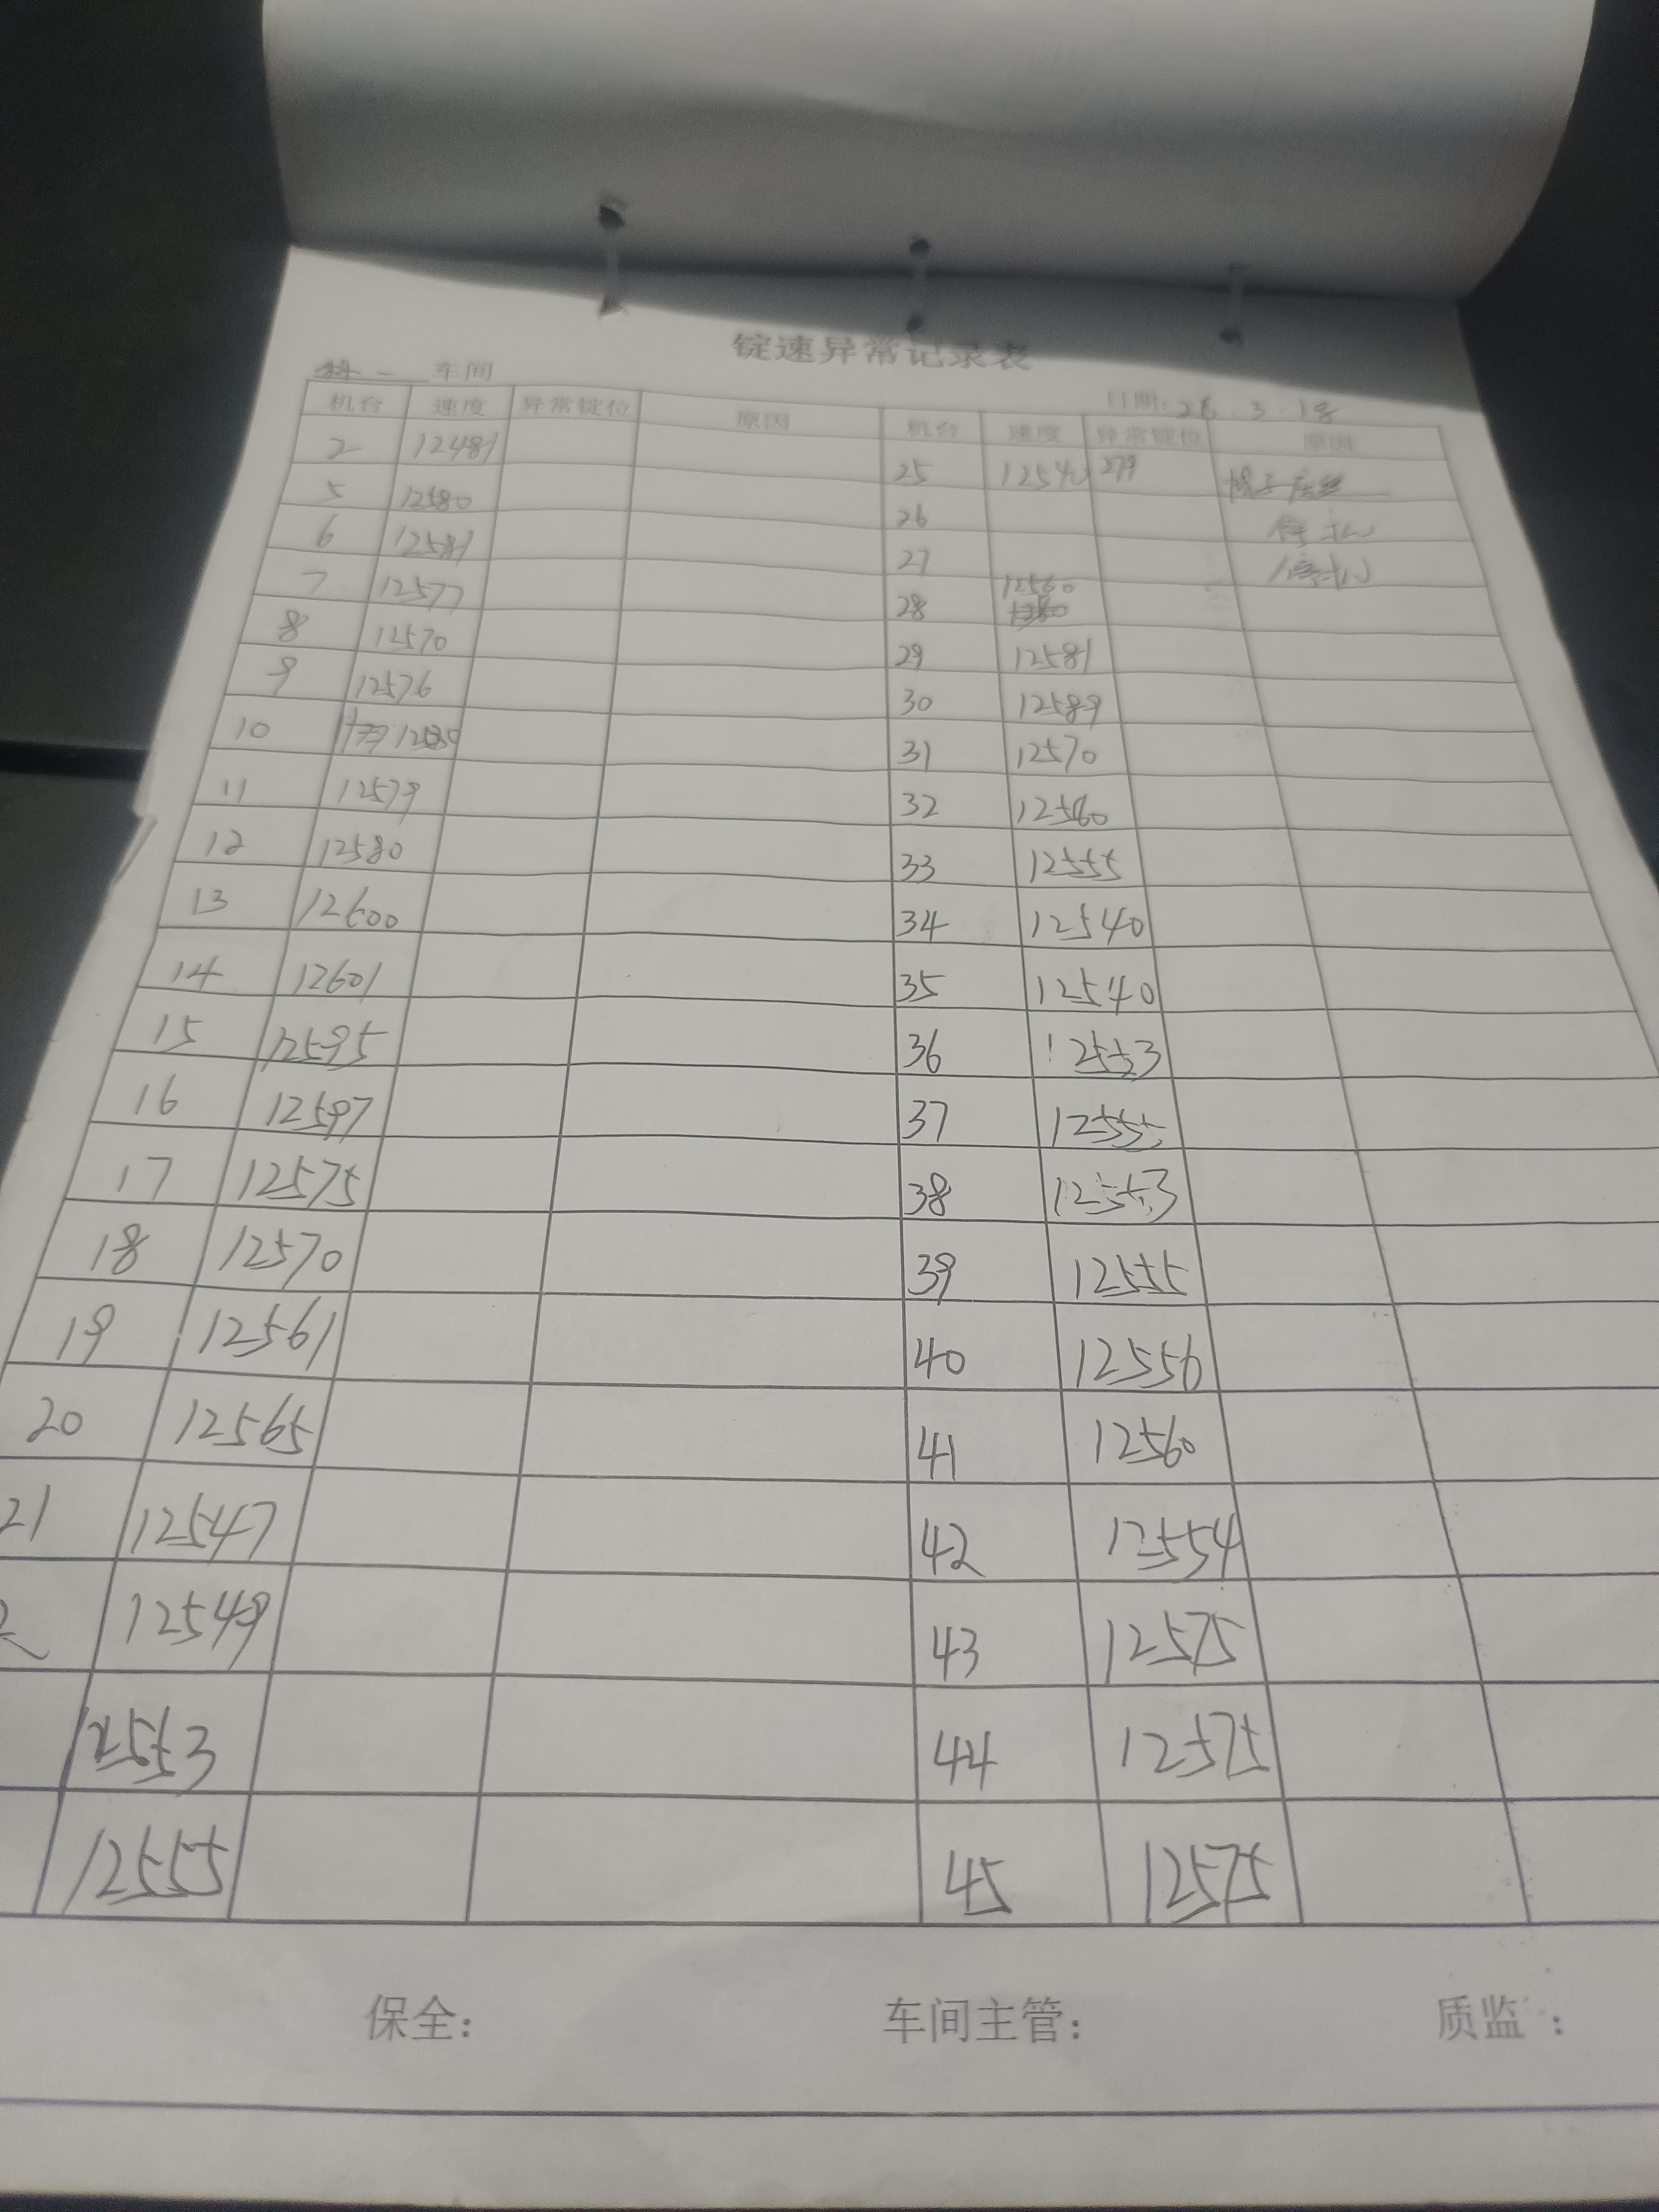 锭速异常记录表
车间
日期: 26.3.18
机台 速度 异常锭位 原因 机台 速度 异常锭位 原因
2 12481 25 12540 279
5 12580 26 停机
6 12581 27 停机
7 12577 28 12560
8 12570 29 12581
9 12576 30 12589
10 12580 31 12570
11 12579 32 12560
12 12580 33 12555
13 12600 34 12540
14 12601 35 12540
15 12595 36 12553
16 12597 37 12555
17 12575 38 12553
18 12570 39 12555
19 12561 40 12556
20 12565 41 12560
21 12547 42 12554
2 12549 43 12575
12553 44 12575
12555 45 12575
保全: 车间主管: 质监: